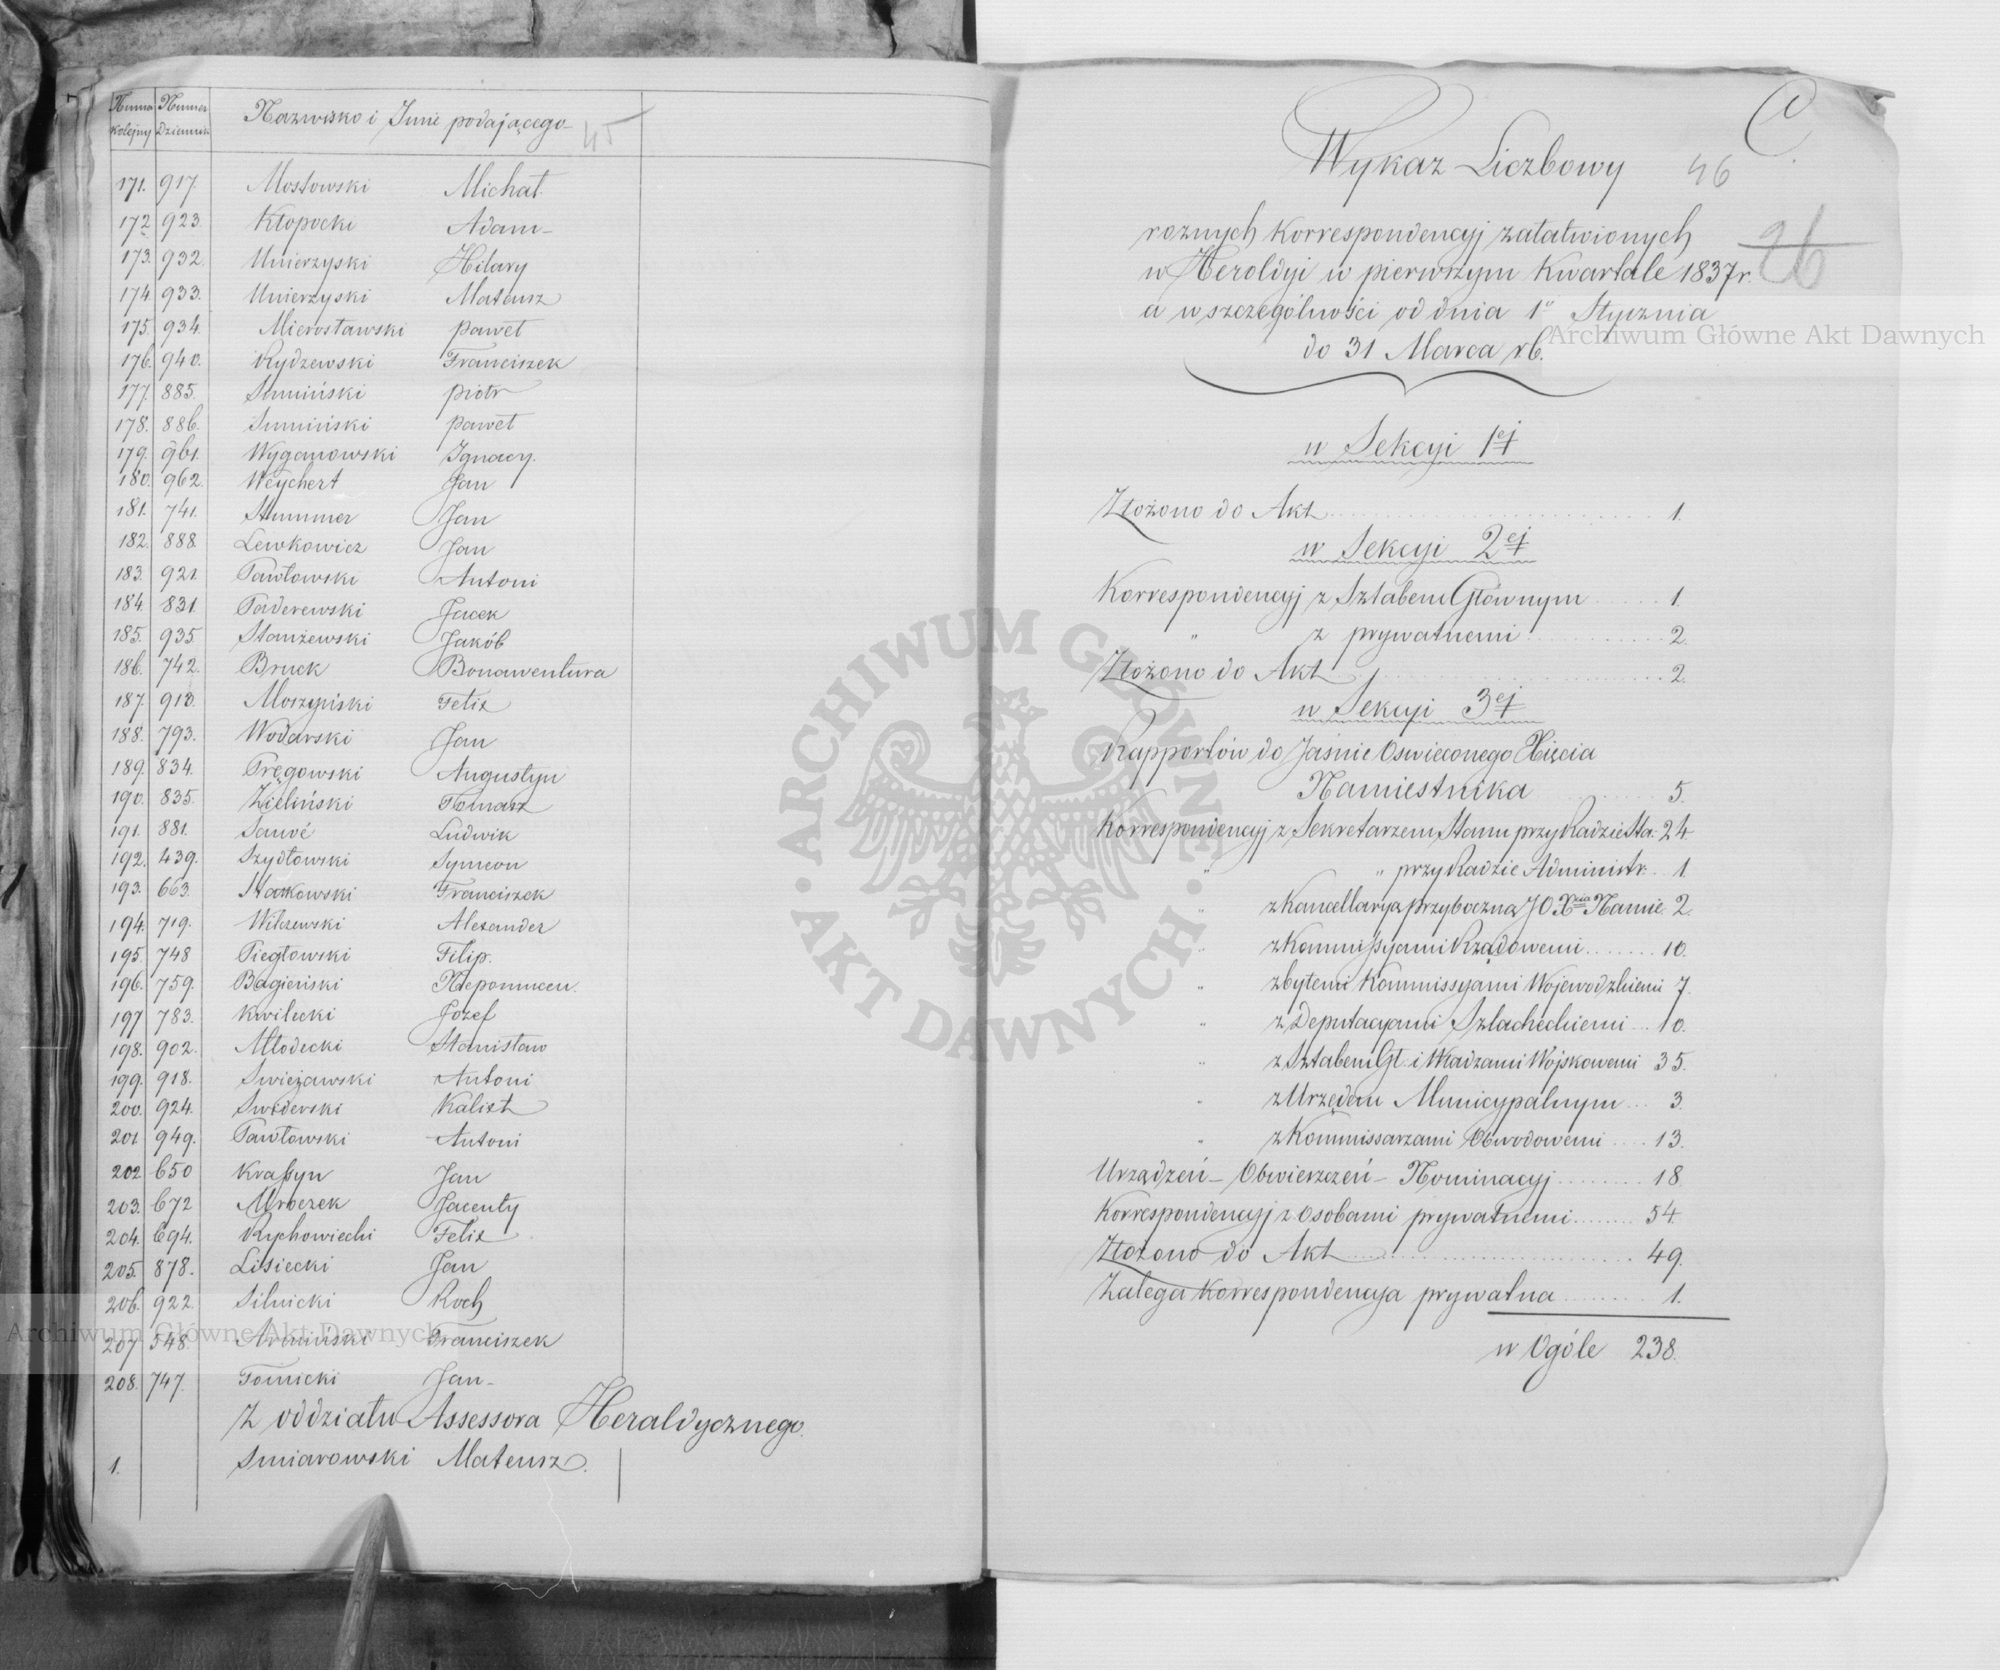 Numer kolejny Numer Dziennik Nazwisko i Imie podającego
45
171. 917. Mostowski Michał
172 923 Kłopocki Adam
173. 932. Unierzyski Hilary
174. 933. Unierzyski Mateusz
175. 934. Mierosławski Paweł
176. 940. Rydzewski Franciszek
177. 885. Sumiński Piotr
178. 886. Sumiński Paweł
179. 961. Wyganowski Ignacy.
180. 962. Weychert Jan
181. 741. Stummer Jan
182. 888 Lewkowicz Jan
183. 921. Pawłowski Antoni
184. 831. Paderewski Jacek
185. 935 Stanżewski Jakób
186. 742. Bruck Bonawentura
187. 913. Moszyński Felix
188. 793. Wodarski Jan
189. 834. Pręgowski Augustyn
190. 835. Zieliński Tomasz
191. 881. Sauvé Ludwik
192. 439. Szydłowski Symeon
193. 663. Franciszek
194. 719. Wilczewski Alexander
195. 748 Piegłowski Filip.
196. 759. Bagieński Nepomucen.
197 783. Kwilecki Józef
198. 902. Młodecki Stanisław
199. 918. Swieżawski Antoni
200. 924. Swiderski Kalixt
201 949. Pawłowski Antoni
202 650 Krassyn Jan
203. 672 Mroczek Jacenty
204. 694. Rychowiecki Felix
205. 878. Lisiecki Jan
206. 922. Silnicki Roch
207 548. Armiński Franciszek
208. 747. Tomicki Jan
Z oddziału Assessora Heraldycznego.
1. Smiarowski Mateusz.
Wykaz Liczbowy
46
roznych korrespondencyj załatwionych
w Heroldyi w pierwszym Kwartale 1837 r.
26
a w szczególności od dnia 1o Stycznia
do 31 Marca rb.
w Sekcyi 1ej
Złożono do Akt 1.
w Sekcyi 2ej
Korrespondencyj z Sztabem Głównym 1.
" z prywatnemi 2.
Złożono do Akt 2.
w Sekcyi 3ej
Rapportów do Jaśnie Oswieconego Xięcia
Namiestnika 5.
Korrespondencyj z Sekretarzem Stanu przy Radzie Sta: 24
" " przy Radzie Administr. 1.
" z Kancellaryą przyboczną JO Xcia Namie. 2.
" z Kommissyami Rządowemi 10.
" z bytemi Kommissyami Wojewodzkiemi 7.
" z Deputacyami Szlacheckiemi 10.
" z Sztabem Gł. i Władzami Wojskowemi 35.
" z Urzędem Municypalnym 3.
" z Kommissarzami Obwodowemi 13.
Urządzeń - Obwierzczeń - Nominacyj 18
Korrespondencyj z osobami prywatnemi 54.
Złożono do Akt 49.
Zalega Korrespondencya prywatna 1.
w Ogóle 238.
Archiwum Główne Akt Dawnych
Archiwum Główne Akt Dawnych
ARCHIWUM GŁÓWNE AKT DAWNYCH